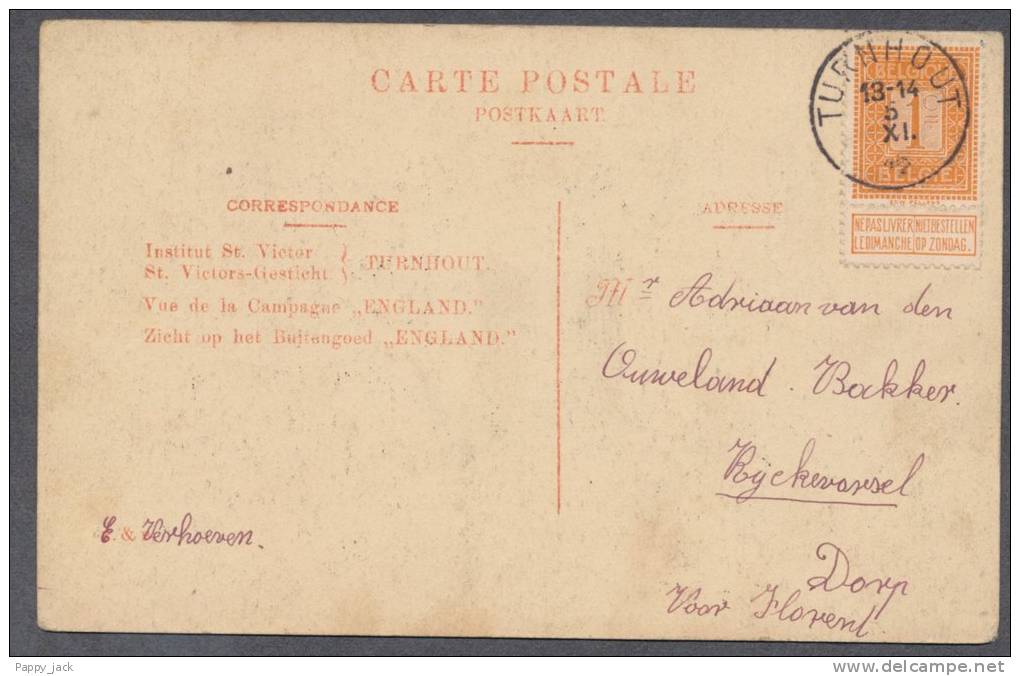 CARTE POSTALE
POSTKAART
TURNHOUT
13-14
5
XI.
12
BELGIQUE
1
BELGIË
NE PAS LIVRER LE DIMANCHE
NIET BESTELLEN OP ZONDAG.
CORRESPONDANCE
Institut St. Victor
St. Victors-Gesticht } TURNHOUT.
Vue de la Campagne „ENGLAND."
Zicht op het Buitengoed „ENGLAND."
E. & Verhoeven.
ADRESSE
Mr Adriaan van den
Ouweland. Bakker.
Ryckevorsel
Dorp
Voor Florent
Pappy_jack
www.delcampe.net